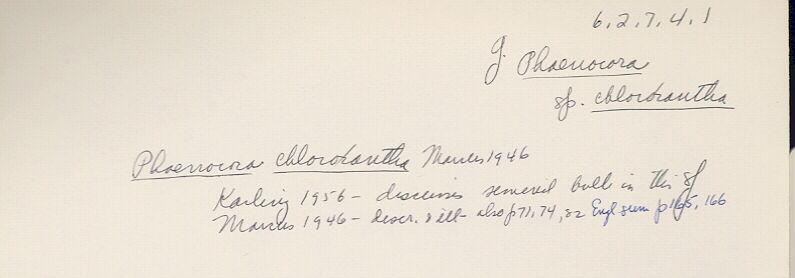 6.2.7.4.1
g. Phaenocora
sp. chloroxantha
Phaenocora chloroxantha Marcus 1946
Karling 1956 - discusses seminal bulb in this sp
Marcus 1946 - descr. & ill - also p 71, 74, 82 Engl sum p 165, 166